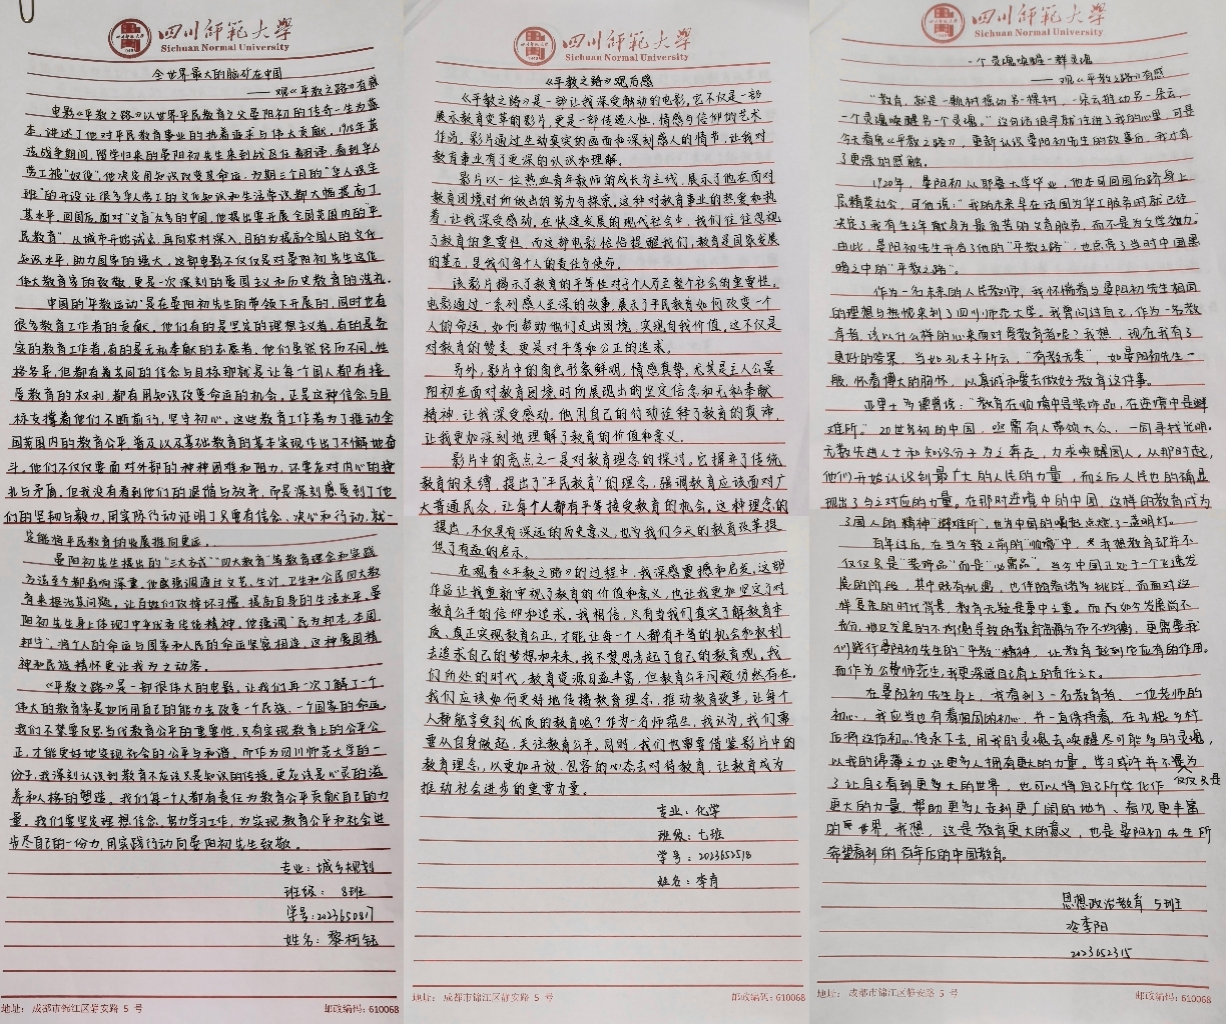 四川师范大学
Sichuan Normal University
全世界最大的脑矿在中国
——观《平教之路》有感
电影《平教之路》以世界平民教育之父晏阳初的传奇一生为蓝
本,讲述了他对平民教育事业的执着追求与伟大贡献。1918年其
战争期间,留学归来的晏阳初先生来到战区任翻译,看到华人
劳工被“奴役”,他决定用知识改变其命运,为期三个月的“华人识字
班”的开设让很多华人劳工的文化知识和生活常识都大幅提高了
其水平。回国后,面对“文盲”众多的中国,他提出要开展全国范围内的“平
民教育”,从城市开始试点,再向农村深入,目的为提高全国人的文化
知识水平,助力国家的强大。这部电影不仅仅是对晏阳初先生这位
伟大教育家的致敬,更是一次深刻的爱国主义和历史教育的洗礼。
中国的“平教运动”是在晏阳初先生的带领下开展的,同时也有
很多教育工作者的贡献,他们有的是坚定的理想主义者,有的是务
实的教育工作者,有的是无私奉献的志愿者,他们虽然经历不同、性
格各异,但都有着共同的信念与目标那就是让每个国人都有接
受教育的权利,都有用知识改变命运的机会。正是这种信念与目
标支撑着他们不断前行,坚守初心。这些教育工作者为了推动全
国范围内的教育公平、普及以及基础教育的基本实现作出了不懈地奋
斗。他们不仅仅要面对外部的种种困难和阻力,还要应对内心的挣
扎与矛盾,但我没有看到他们的退懦与放弃,而是深刻感受到了他
们的坚韧与毅力,用实际行动证明了只要有信念、决心和行动,就一
定能将平民教育的发展推向更远。
晏阳初先生提出的“三大方式”“四大教育”等教育理念和实践
方法至今都影响深重,他强调通过文艺、生计、卫生和公民四大教
育来根治其问题。让百姓们改掉坏习惯,提高自身的生活水平。晏
阳初先生身上体现了中华优秀传统精神,他强调“民为邦本,本固
邦宁”,将个人的命运与国家和人民的命运紧密相连,这种爱国精
神和民族情怀更让我为之动容。
《平教之路》是一部很伟大的电影,让我们再一次了解了一个
伟大的教育家是如何用自己的能力去改变一个民族、一个国家的命运。
我们不禁要反思当代教育公平的重要性,只有实现教育上的公平公
正,才能更好地实现社会的公平与和谐。所作为四川师范大学的一
份子,我深刻认识到教育不应该只是知识的传授,更应该是心灵的滋
养和人格的塑造。我们每一个人都有责任为教育公平贡献自己的力
量。我们要坚定理想信念,努力学习工作,为实现教育公平和社会进
步尽自己的一份力,用实践行动向晏阳初先生致敬。
专业:城乡规划
班级: 8班
学号:2023650817
姓名:黎柯钰
地址: 成都市锦江区静安路 5 号 邮政编码:610068
四川师范大学
Sichuan Normal University
《平教之路》观后感
《平教之路》是一部让我深受触动的电影,它不仅是一部
展示教育变革的影片,更是一部传递人性、情感与信仰的艺术
作品。影片通过生动真实的画面和深刻感人的情节,让我对
教育事业有了更深的认识和理解。
影片以一位热血青年教师的成长为主线,展示了他在面对
教育困境时所做出的努力与探索。这种对教育事业的热爱和执
着,让我深受感动。在快速发展的现代社会中,我们往往忽视
了教育的重要性,而这部电影恰恰提醒我们,教育是国家发展
的基石,是我们每个人的责任与使命。
该影片揭示了教育的平等性对于个人乃至整个社会的重要性。
电影通过一系列感人至深的故事,展示了平民教育如何改变一个
人的命运,如何帮助他们走出困境,实现自我价值。这不仅是
对教育的赞美,更是对平等和公正的追求。
另外,影片中的角色形象鲜明,情感真挚,尤其是主人公晏
阳初在面对教育困境时所展现出的坚定信念和无私奉献
精神,让我深受感动。他用自己的行动诠释了教育的真谛,
让我更加深刻地理解了教育的价值和意义。
影片中的亮点之一是对教育理念的探讨。它摒弃了传统
教育的束缚,提出了“平民教育”的理念,强调教育应该面对广
大普通民众,让每个人都有平等接受教育的机会。这种理念的
提出,不仅具有深远的历史意义,也为我们今天的教育改革提
供了有益的启示。
在观看《平教之路》的过程中,我深感震撼和启发。这部
作品让我重新审视了教育的价值和意义,也让我更加坚定了对
教育公平的信仰和追求。我相信,只有当我们真实了解教育本
质、真正实现教育公正,才能让每一个人都有平等的机会和权利
去追求自己的梦想和未来。我不禁思考起了自己的教育观。我
们所处的时代,教育资源日益丰富,但教育公平问题仍然存在。
我们应该如何更好地传播教育理念,推动教育改革,让每个
人都能享受到优质的教育呢?作为一名师范生,我认为,我们需
要从自身做起,关注教育公平。同时,我们也需要借鉴影片中的
教育理念,以更加开放、包容的心态去对待教育,让教育成为
推动社会进步的重要力量。
专业:化学
班级:七班
学号:2023652518
姓名:李育
地址: 成都市锦江区静安路 5 号 邮政编码:610068
四川师范大学
Sichuan Normal University
一个灵魂唤醒一群灵魂
——观《平教之路》有感
“教育,就是一颗树摇动另一棵树,一朵云推动另一朵云,
一个灵魂唤醒另一个灵魂。”这句话很早就住进了我的心里,可是
今在看完《平教之路》,重新认识晏阳初先生的故事后,我才有
了更深的感触。
1920年,晏阳初从耶鲁大学毕业,他本可回国后跻身上
层精英社会,可他说:“我的未来早在法国为华工服务时就已经
决定了我有生之年献身为最贫苦的文盲服务,而不是为文学效力”
由此,晏阳初先生开启了他的“平教之路”,也点亮了当时中国黑
暗之中的“平教之路”。
作为一名未来的人民教师,我怀揣着与晏阳初先生相同
的理想与热忱来到了四川师范大学。我曾问过自己,作为一名教
育者,该以什么样的心来面对受教育者呢?我想,现在我有了
更好的答案,当如孔夫子所云,“有教无类”,如晏阳初先生一
般,怀着博大的胸怀,以真诚和爱去做好教育这件事。
亚里士多德曾说:“教育在顺境中是装饰品,在逆境中是避
难所。”20世纪初的中国,亟需有人带领大众,一同寻找光明。
无数先进人士和知识分子为之奔走,力求唤醒国人。从那时起,
他们开始认识到最广大的人民的力量,而之后人民也的确显
现出了与之对应的力量。在那时逆境中的中国,这样的教育成为
了国人的精神“避难所”,也为中国的崛起点燃了一盏明灯。
百年过后,在当今较之前的“顺境”中,我想教育却并不
仅仅只是“装饰品”而是“必需品”。当今中国正处于一个飞速发
展的阶段,其中既有机遇,也伴随着诸多挑战,而面对这
样复杂的时代背景,教育无疑是重中之重。而西如今发展尚不
充分,地区发展的不均衡导致的教育资源分布不均衡,更需要我
们践行晏阳初先生的“平教”精神,让教育起到它应有的作用。
而作为公费师范生,我更深感自己肩上的责任之大。
在晏阳初先生身上,我看到了一名教育者、一位老师的
初心,我应当也有着相同的初心,并一直保持着,在扎根乡村
后将这份初心传承下去,用我的灵魂去唤醒尽可能多的灵魂,
以我的绵薄之力让更多人拥有更大的力量。学习或许并不是为
仅仅只是
了让自己看到更多大的世界,也可以将自己所学化作
更大的力量,帮助更多人走到更广阔的地方,看见更丰富
的世界。我想,这是教育更大的意义,也是晏阳初先生所
希望看到的百年后的中国教育。
思想政治教育 5班
冷李阳
2023652315
地址: 成都市锦江区静安路 5 号 邮政编码:610068